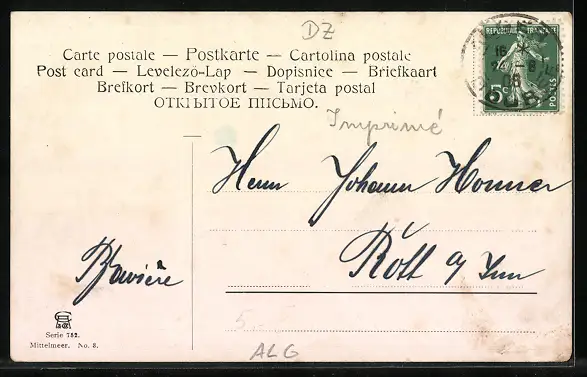 DZ
Carte postale — Postkarte — Cartolina postale
Post card — Levelező-Lap — Dopisnice — Briefkaart
Brefkort — Brevkort — Tarjeta postal
ОТКРЫТОЕ ПИСЬМО.
REPUBLIQUE FRANÇAISE
5c POSTES
16
Imprimé
Herrn Johann Honner
Rott a/Inn
Bavière
Serie 752.
Mittelmeer. No. 8.
5
ALG